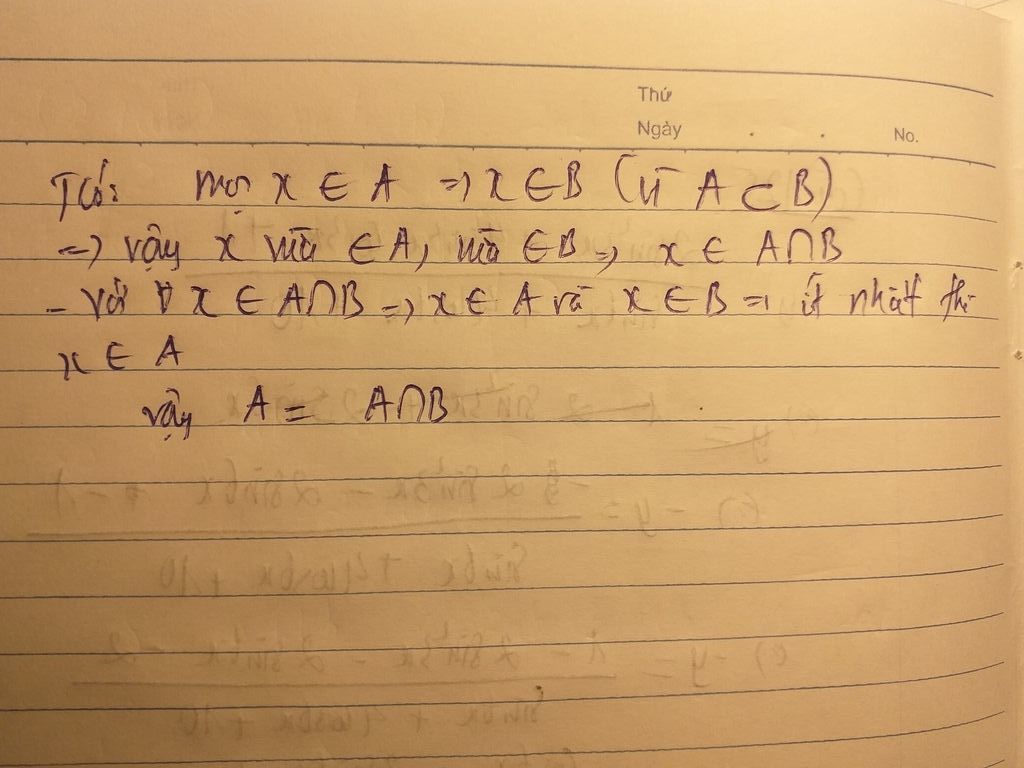 Thứ
Ngày . . No.
T có: mọi x ∈ A => x ∈ B (vì A ⊂ B)
=> vậy x vừa ∈ A, vừa ∈ B => x ∈ A∩B
- Với ∀ x ∈ A∩B => x ∈ A và x ∈ B => ít nhất thì
x ∈ A
vậy A = A∩B